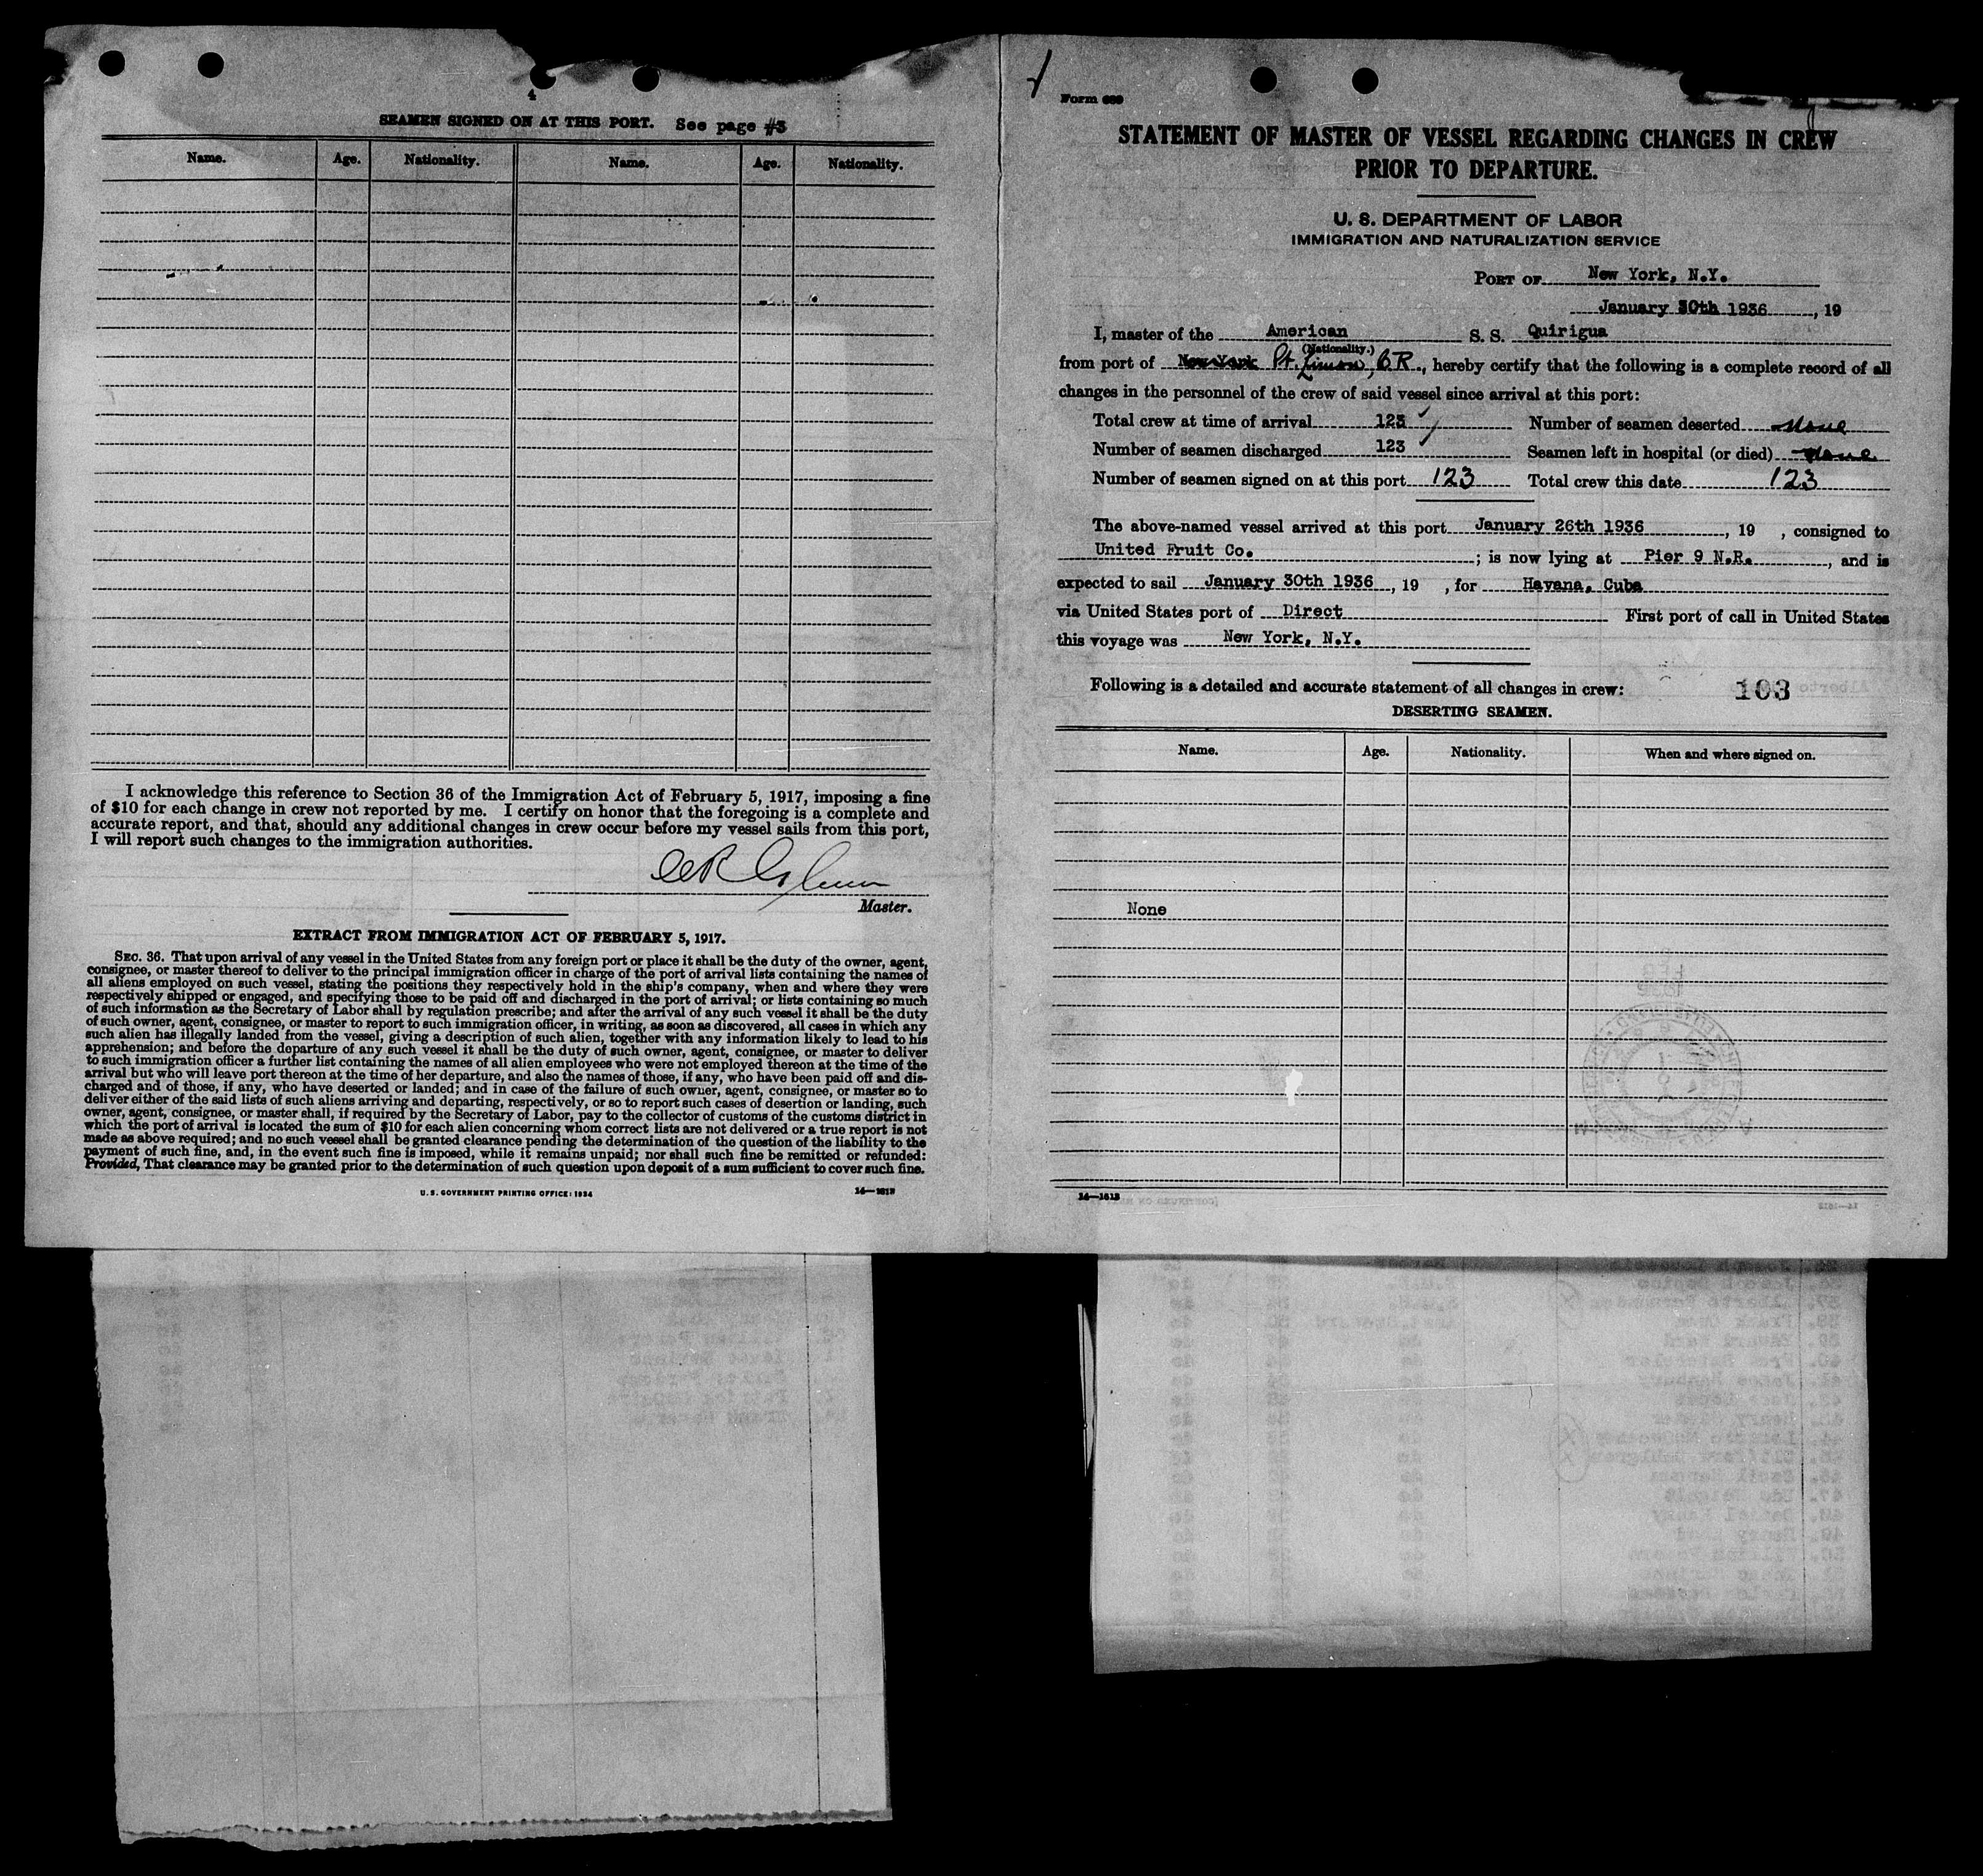 4
SEAMEN SIGNED ON AT THIS PORT. See page #3
Name. Age. Nationality. Name. Age. Nationality.
I acknowledge this reference to Section 36 of the Immigration Act of February 5, 1917, imposing a fine
of $10 for each change in crew not reported by me. I certify on honor that the foregoing is a complete and
accurate report, and that, should any additional changes in crew occur before my vessel sails from this port,
I will report such changes to the immigration authorities.
Master.
EXTRACT FROM IMMIGRATION ACT OF FEBRUARY 5, 1917.
SEC. 36. That upon arrival of any vessel in the United States from any foreign port or place it shall be the duty of the owner, agent,
consignee, or master thereof to deliver to the principal immigration officer in charge of the port of arrival lists containing the names of
all aliens employed on such vessel, stating the positions they respectively hold in the ship's company, when and where they were
respectively shipped or engaged, and specifying those to be paid off and discharged in the port of arrival; or lists containing so much
of such information as the Secretary of Labor shall by regulation prescribe; and after the arrival of any such vessel it shall be the duty
of such owner, agent, consignee, or master to report to such immigration officer, in writing, as soon as discovered, all cases in which any
such alien has illegally landed from the vessel, giving a description of such alien, together with any information likely to lead to his
apprehension; and before the departure of any such vessel it shall be the duty of such owner, agent, consignee, or master to deliver
to such immigration officer a further list containing the names of all alien employees who were not employed thereon at the time of the
arrival but who will leave port thereon at the time of her departure, and also the names of those, if any, who have been paid off and dis-
charged and of those, if any, who have deserted or landed; and in case of the failure of such owner, agent, consignee, or master so to
deliver either of the said lists of such aliens arriving and departing, respectively, or so to report such cases of desertion or landing, such
owner, agent, consignee, or master shall, if required by the Secretary of Labor, pay to the collector of customs of the customs district in
which the port of arrival is located the sum of $10 for each alien concerning whom correct lists are not delivered or a true report is not
made as above required; and no such vessel shall be granted clearance pending the determination of the question of the liability to the
payment of such fine, and, in the event such fine is imposed, while it remains unpaid; nor shall such fine be remitted or refunded:
Provided, That clearance may be granted prior to the determination of such question upon deposit of a sum sufficient to cover such fine.
U. S. GOVERNMENT PRINTING OFFICE: 1934 14—1613
Form 689
STATEMENT OF MASTER OF VESSEL REGARDING CHANGES IN CREW
PRIOR TO DEPARTURE.
U. S. DEPARTMENT OF LABOR
IMMIGRATION AND NATURALIZATION SERVICE
PORT OF New York, N.Y.
January 30th 1936, 19
I, master of the American S. S. Quirigua
(Nationality.)
from port of New York Pt. Limon, CR., hereby certify that the following is a complete record of all
changes in the personnel of the crew of said vessel since arrival at this port:
Total crew at time of arrival 123 Number of seamen deserted None
Number of seamen discharged 123 Seamen left in hospital (or died) None
Number of seamen signed on at this port 123 Total crew this date 123
The above-named vessel arrived at this port January 26th 1936, 19 , consigned to
United Fruit Co. ; is now lying at Pier 9 N.R., and is
expected to sail January 30th 1936, 19 , for Havana, Cuba
via United States port of Direct First port of call in United States
this voyage was New York, N.Y.
Following is a detailed and accurate statement of all changes in crew: 103
DESERTING SEAMEN.
Name. Age. Nationality. When and where signed on.
None
14—1613